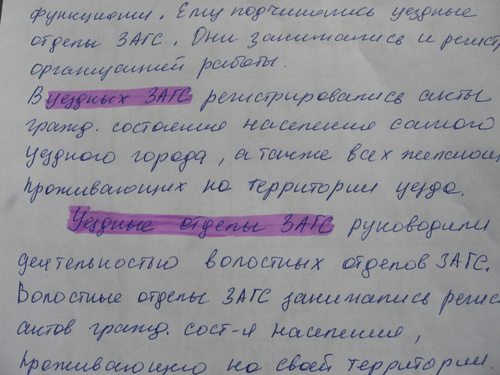 функциями. Ему подчинялись уездные
отделы ЗАГС. Они занимались и регистр
организацией работы.
В уездных ЗАГС регистрировались акты
гражд. состояния населения самого
уездного города, а также всех
проживающих на территории уезда.
Уездные отделы ЗАГС руководили
деятельностью волостных отделов ЗАГС.
Волостные отделы ЗАГС занимались регис
актов гражд. сост-я населения,
проживающего на своей территории.